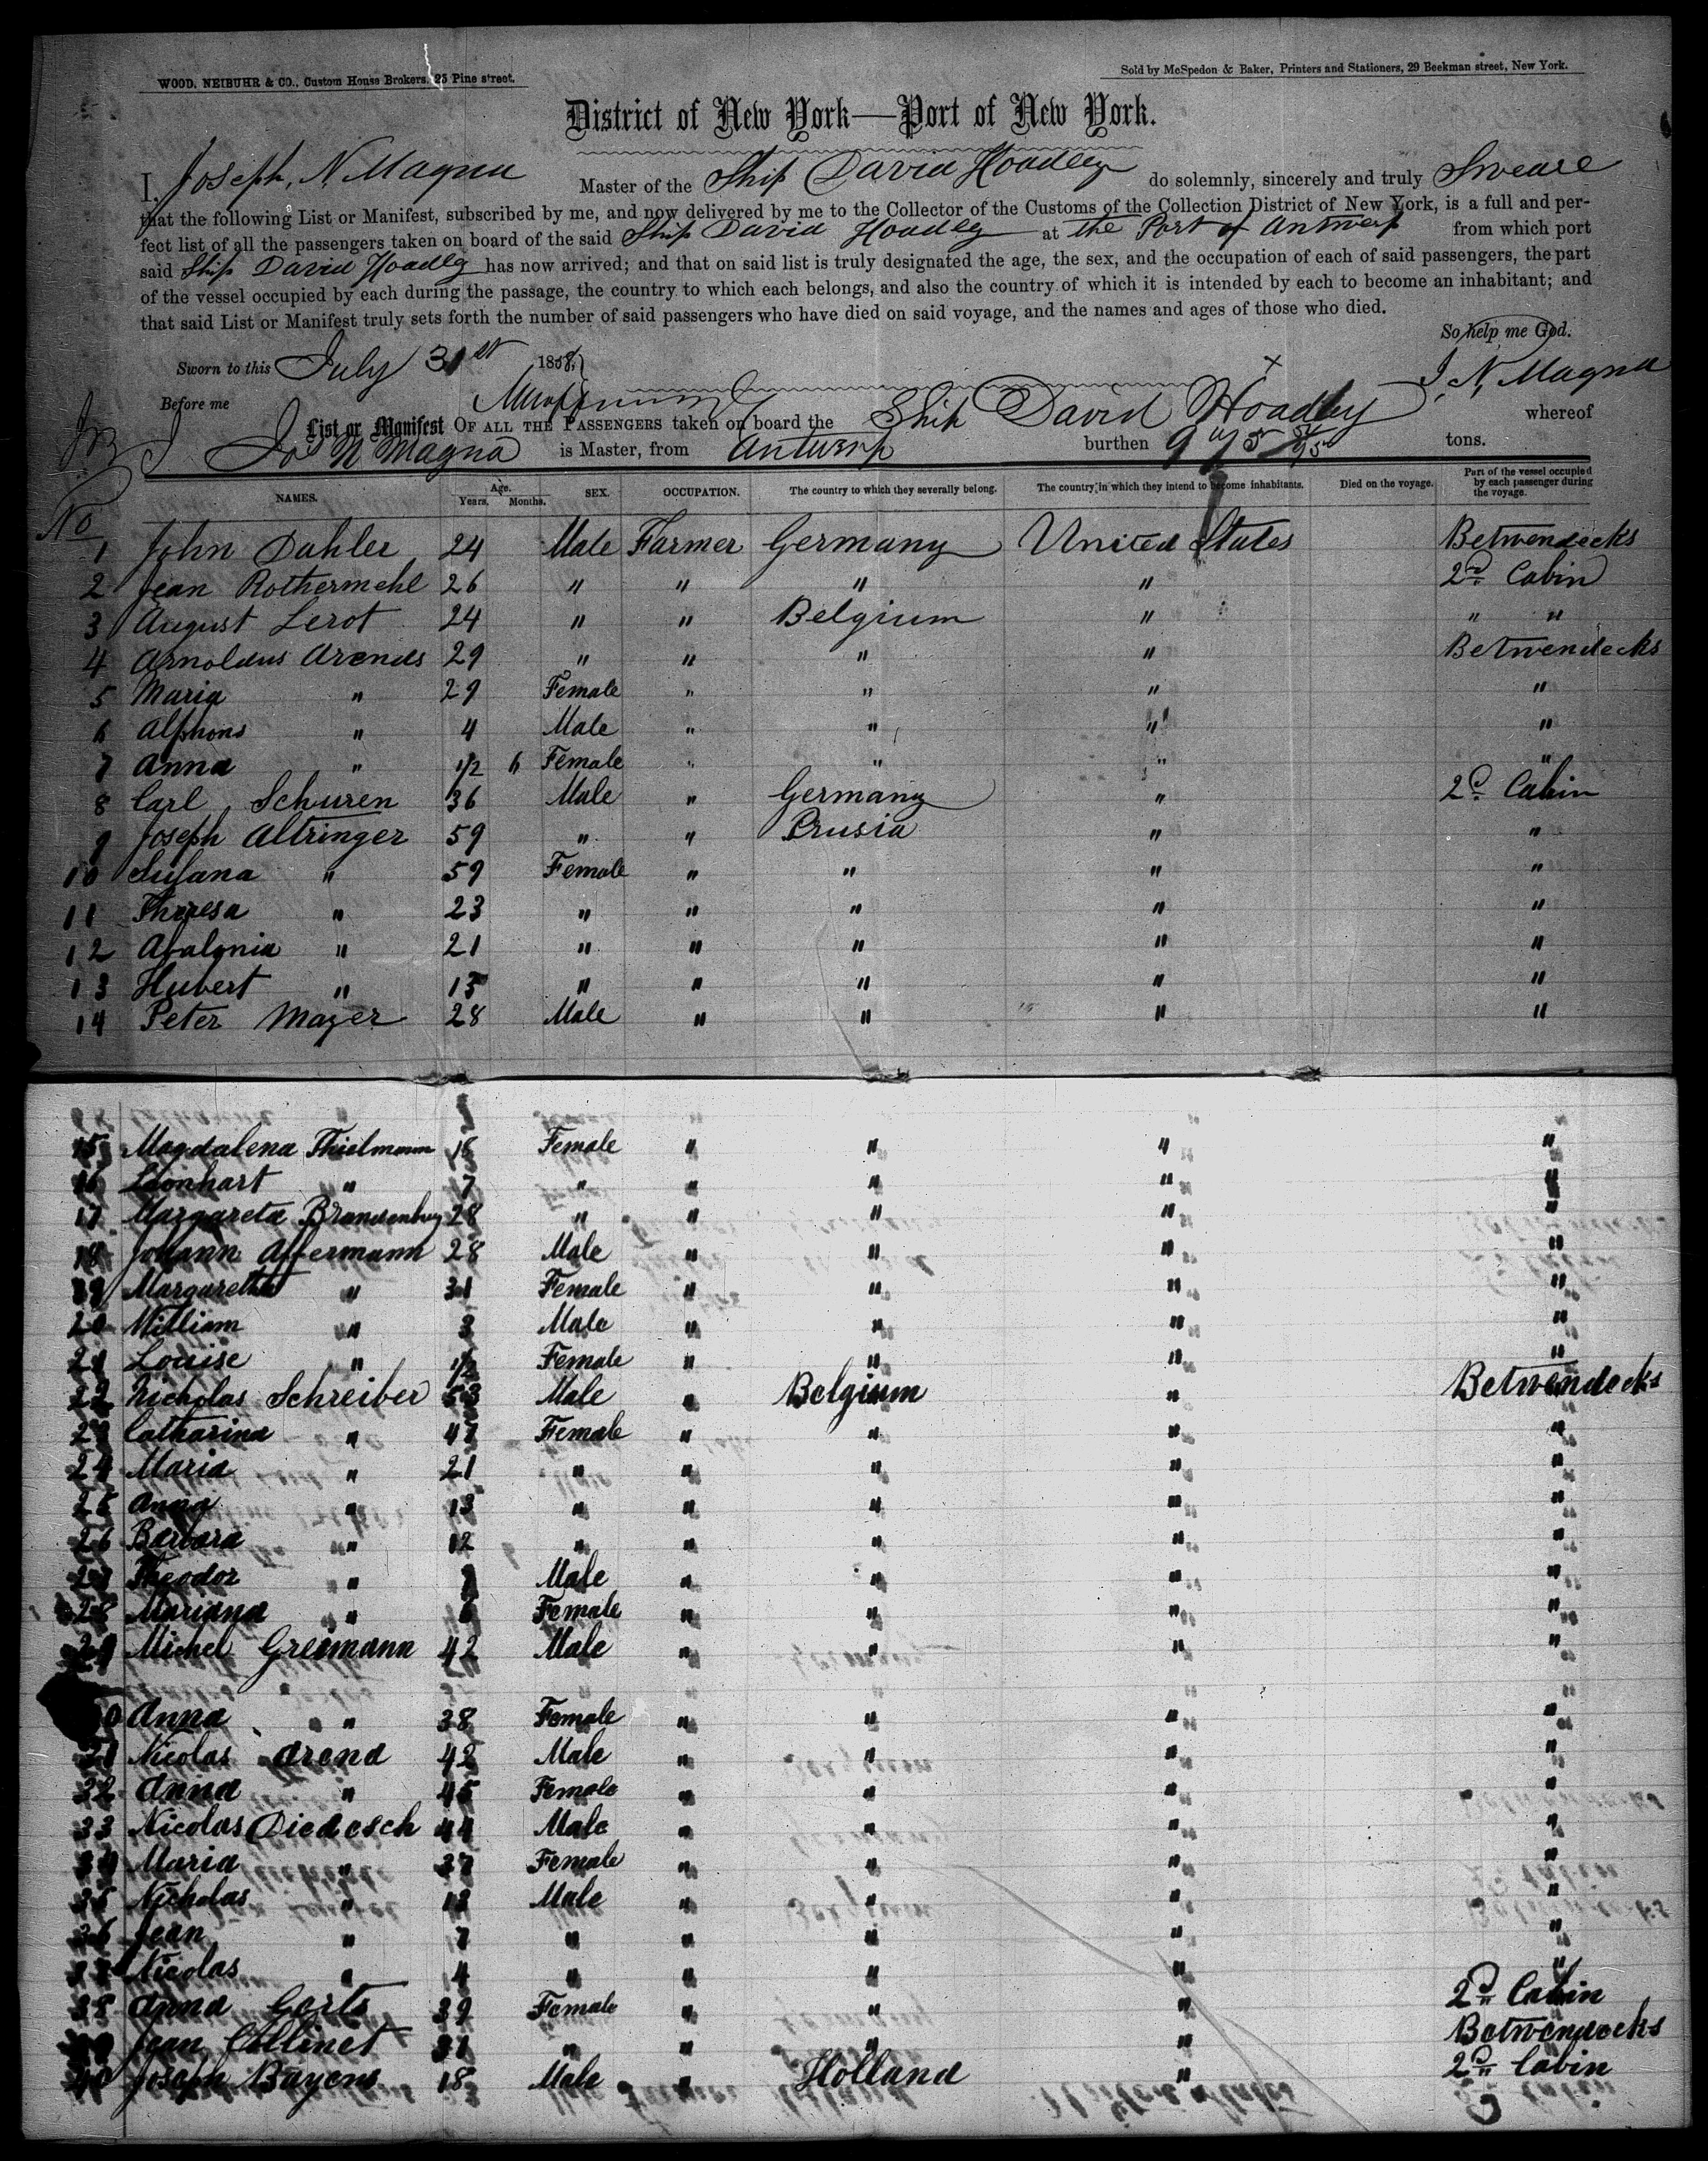 WOOD, NEIBUHR & CO., Custom House Brokers, 23 Pine street.
Sold by McSpedon & Baker, Printers and Stationers, 29 Beekman street, New York.
District of New York—Port of New York.
I, Joseph, N. Magna Master of the Ship David Hoadley do solemnly, sincerely and truly Sweare
that the following List or Manifest, subscribed by me, and now delivered by me to the Collector of the Customs of the Collection District of New York, is a full and per-
fect list of all the passengers taken on board of the said Ship David Hoadley at the Port of Antwerp from which port
said Ship David Hoadley has now arrived; and that on said list is truly designated the age, the sex, and the occupation of each of said passengers, the part
of the vessel occupied by each during the passage, the country to which each belongs, and also the country of which it is intended by each to become an inhabitant; and
that said List or Manifest truly sets forth the number of said passengers who have died on said voyage, and the names and ages of those who died.
So help me God.
Sworn to this July 31st 1858,
J. N. Magna
Before me
List or Manifest OF ALL THE PASSENGERS taken on board the Ship David Hoadley whereof
Jos N Magna is Master, from Antwerp burthen 975 tons.
NAMES. Age. Years. Months. SEX. OCCUPATION. The country to which they severally belong. The country in which they intend to become inhabitants. Died on the voyage. Part of the vessel occupied by each passenger during the voyage.
No
1 John Dahler 24 Male Farmer Germany United States Betwendecks
2 Jean Rothermehl 26 " " " " 2d Cabin
3 August Lerot 24 " " Belgium " " "
4 Arnoldus Arends 29 " " " " Betwendecks
5 Maria " 29 Female " " " "
6 Alphons " 4 Male " " " "
7 Anna " 1/2 6 Female " " " "
8 Carl Schuren 36 Male " Germany " 2d Cabin
9 Joseph Altringer 59 " " Prusia " "
10 Susana " 59 Female " " " "
11 Theresa " 23 " " " " "
12 Abalonia " 21 " " " " "
13 Hubert " 15 " " " " "
14 Peter Mayer 28 Male " " " "
15 Magdalena Thielmann 18 Female " " " "
16 Leonhart " 7 " " " " "
17 Margareta Brandenburg 28 " " " " "
18 Johann Affermann 28 Male " " " "
19 Margaretha " 31 Female " " " "
20 William " 3 Male " " " "
21 Louise " 1/2 Female " " " "
22 Nicholas Schreiber 53 Male " Belgium " Betwendecks
23 Catharina " 47 Female " " " "
24 Maria " 21 " " " " "
25 Anna " 13 " " " " "
26 Barbara " 12 " " " " "
27 Theodor " Male " " " "
28 Mariana " Female " " " "
29 Michel Greimann 42 Male " " " "
Anna " 38 Female " " " "
31 Nicolas Arend 42 Male " " " "
32 Anna " 45 Female " " " "
33 Nicolas Diedesch 44 Male " " " "
34 Maria " 37 Female " " " "
35 Nicholas " 13 Male " " " "
36 Jean " 7 " " " " "
37 Nicolas " 4 " " " " "
38 Anna Gorts 39 Female " " " 2d Cabin
39 Jean Collinet 31 " " " " Betwendecks
40 Joseph Bayens 18 Male " Holland " 2d Cabin